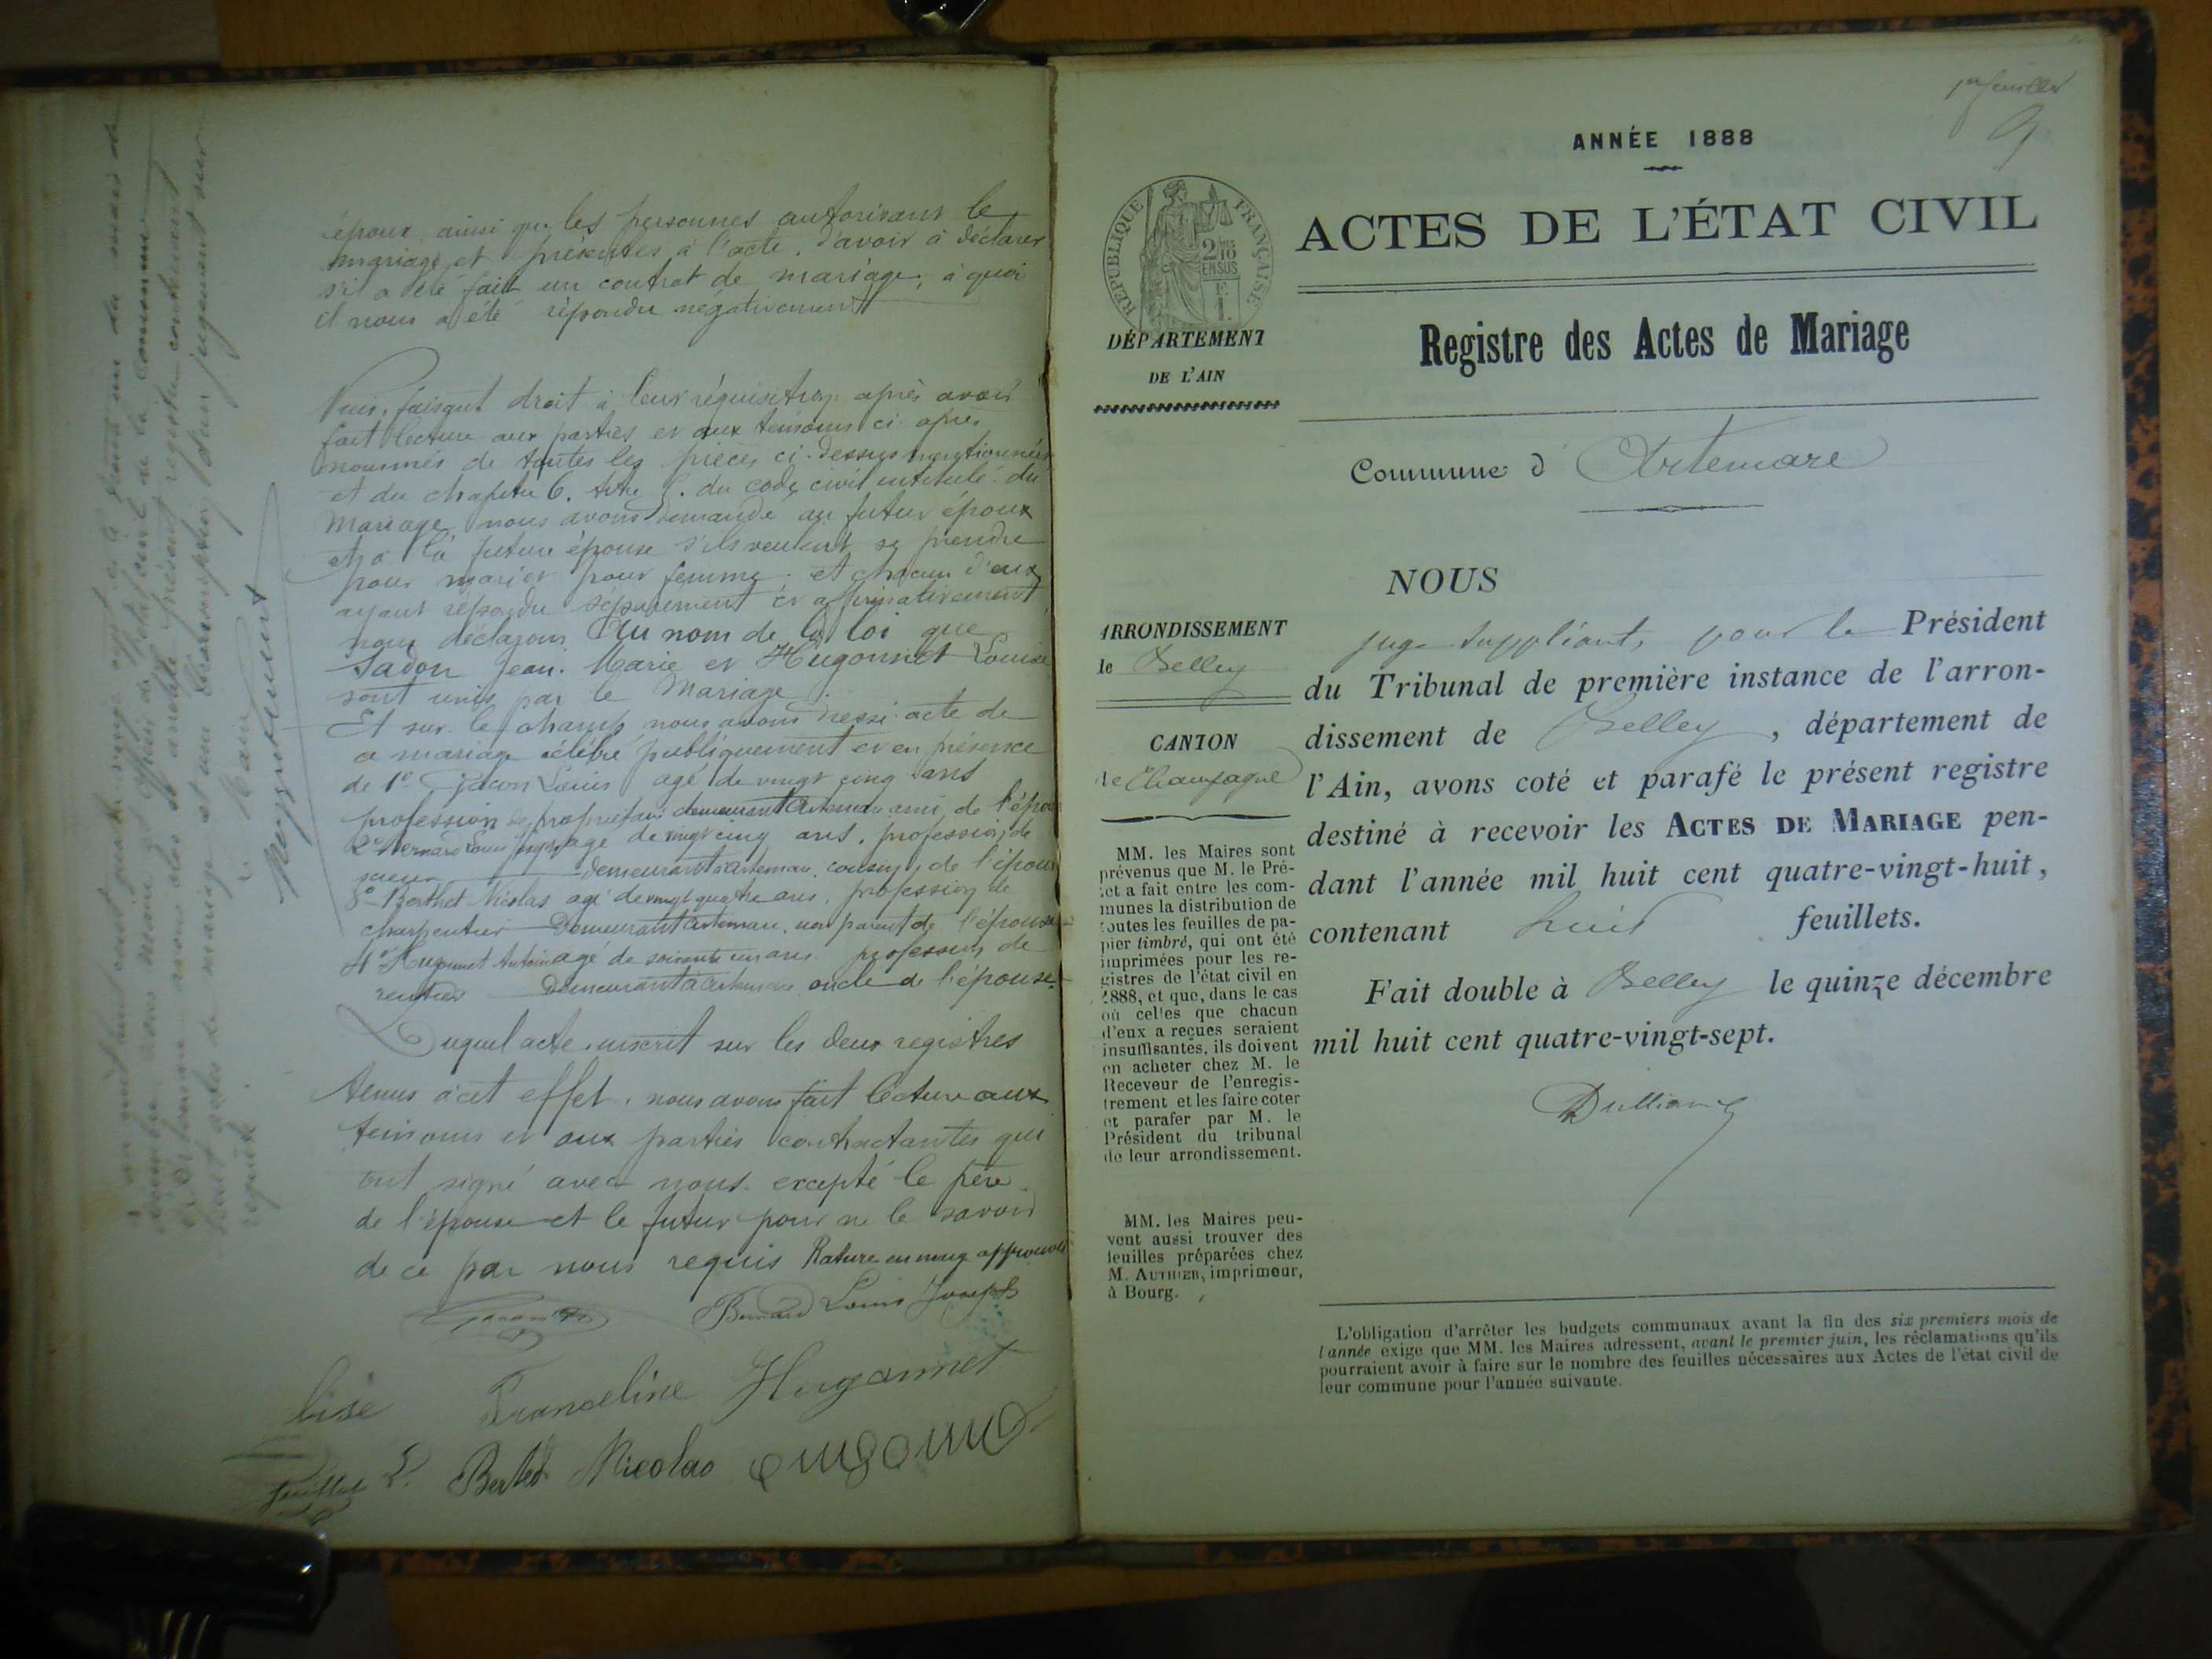 époux ainsi que les personnes autorisant le
mariage et présentes à l'acte, d'avoir à déclarer
s'il a été fait un contrat de mariage, à quoi
il nous a été répondu négativement
Puis, faisant droit à leur réquisition après avoir
fait lecture aux parties et aux témoins ci après
nommés de toutes les pièces ci-dessus mentionnées
et du chapitre 6. titre 5. du code civil intitulé du
Mariage nous avons demandé au futur époux
et à la future épouse s'ils veulent se prendre
pour mari et pour femme; et chacun d'eux
ayant répondu séparément et affirmativement
nous déclarons Au nom de la loi que
Sadon Jean Marie et Hugonnet Louise
sont unis par le Mariage.
Et sur le champ nous avons dressé acte de
ce mariage célébré publiquement et en présence
de 1° Louis agé de vingt cinq ans
profession de propriétaire demeurant Artemare ami de l'époux
2° Bernard Louis Joseph age de vingt cinq ans, profession de
demeurant à Artemare, cousin de l'époux
3° Berthet Nicolas agé de vingt quatre ans, profession de
charpentier demeurant Artemare, non parent de l'épouse
4° Hugonnet Antoine agé de soixante un ans profession de
rentier demeurant à Artemare oncle de l'épouse.
Duquel acte, inscrit sur les deux registres
tenus à cet effet, nous avons fait lecture aux
témoins et aux parties contractantes qui
ont signé avec nous excepté le père
de l'épouse et le futur pour ne le savoir
de ce par nous requis Rature en marge approuvée
Bernard Louis Joseph
lise Franceline Hugonnet
Berthet Nicolas
1er feuillet
ANNÉE 1888
ACTES DE L'ÉTAT CIVIL
RÉPUBLIQUE FRANÇAISE
2/10 EN SUS
DÉPARTEMENT
DE L'AIN
Registre des Actes de Mariage
Commune d'Artemare
NOUS
ARRONDISSEMENT
de Belley
CANTON
de Champagne
MM. les Maires sont
prévenus que M. le Pré-
fet a fait entre les com-
munes la distribution de
toutes les feuilles de pa-
pier timbré, qui ont été
imprimées pour les re-
gistres de l'état civil en
1888, et que, dans le cas
où celles que chacun
d'eux a reçues seraient
insuffisantes, ils doivent
en acheter chez M. le
Receveur de l'enregis-
trement et les faire coter
et parafer par M. le
Président du tribunal
de leur arrondissement.
MM. les Maires peu-
vent aussi trouver des
feuilles préparées chez
M. AUTHIER, imprimeur,
à Bourg.
juge suppléant, pour le Président
du Tribunal de première instance de l'arron-
dissement de Belley, département de
l'Ain, avons coté et parafé le présent registre
destiné à recevoir les ACTES DE MARIAGE pen-
dant l'année mil huit cent quatre-vingt-huit,
contenant huit feuillets.
Fait double à Belley le quinze décembre
mil huit cent quatre-vingt-sept.
L'obligation d'arrêter les budgets communaux avant la fin des six premiers mois de
l'année exige que MM. les Maires adressent, avant le premier juin, les réclamations qu'ils
pourraient avoir à faire sur le nombre des feuilles nécessaires aux Actes de l'état civil de
leur commune pour l'année suivante.